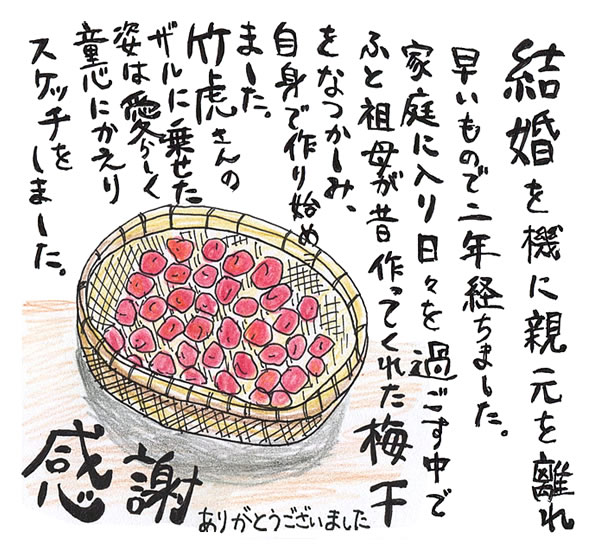 結婚を機に親元を離れ
早いもので二年経ちました。
家庭に入り日々を過ごす中で
ふと祖母が昔作ってくれた梅干
をなつかしみ、
自身で作り始め
ました。
竹虎さんの
ザルに乗せた
姿は愛らしく
童心にかえり
スケッチを
しました。
感謝
ありがとうございました